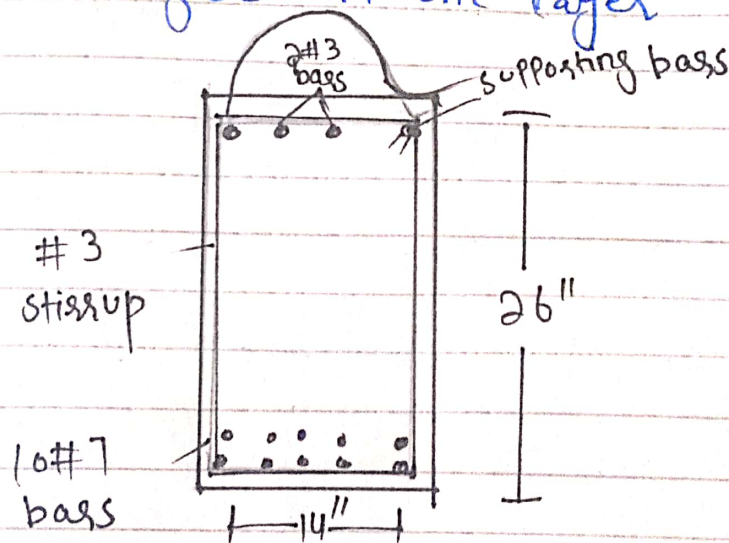 layer
2#3
bars
supporting bars
#3
stirrup
26"
10#7
bars
14"